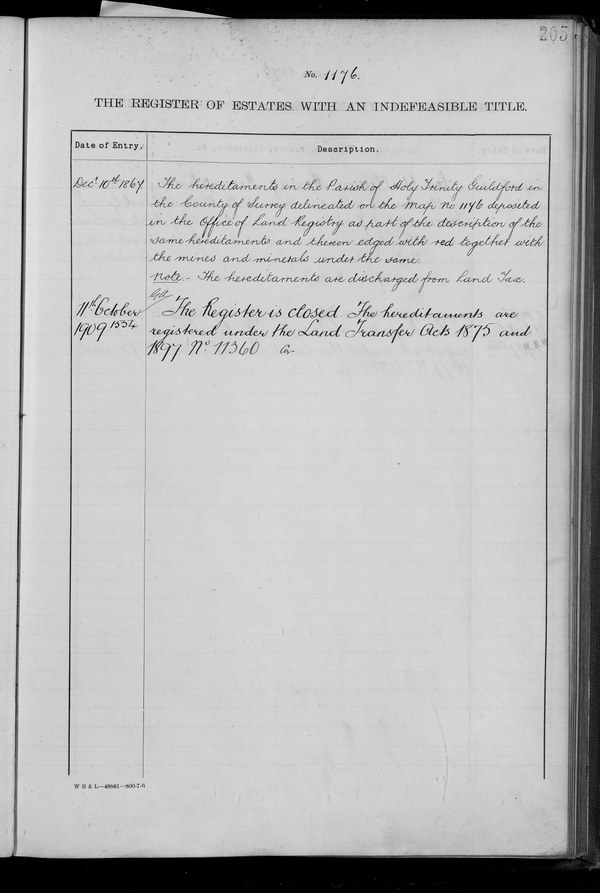 205
No. 1176.
THE REGISTER OF ESTATES WITH AN INDEFEASIBLE TITLE.
Date of Entry.
Description.
Decr 10th 1867
The hereditaments in the Parish of Holy Trinity Guildford in
the County of Surrey delineated on the Map No 1176 deposited
in the Office of Land Registry as part of the description of the
same hereditaments and thereon edged with red together with
the mines and minerals under the same.
Note.- The hereditaments are discharged from Land Tax.
11th October
1909 1554
The Register is closed. The hereditaments are
registered under the Land Transfer Acts 1875 and
1897 No. 11360
W B & L—48881—800-7-6